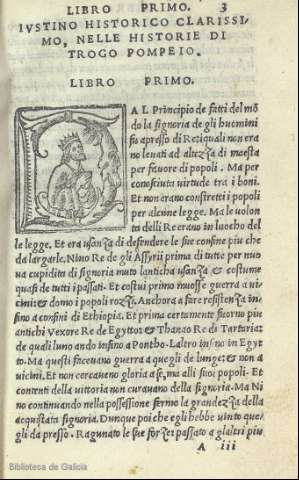 LIBRO PRIMO. 3
IVSTINO HISTORICO CLARISSI-
MO, NELLE HISTORIE DI
TROGO POMPEIO.
LIBRO PRIMO.
AL Principio de fatti del mõ
do la signoria de gli huomini
fu apresso di Re: iquali non era
no leuati ad altezza di maesta
per fauore di popoli. Ma per
conosciuta virtude tra i boni.
Et non erano constretti i popoli
per alcune legge. Ma le volon
ta delli Re erano in luocho del
le legge. Et era usanza di defendere le sue confine piu che
da largarle. Nino Re de gli Assyrii prima di tutte per nuo
ua cupidita di signoria muto lanticha usanza & costume
quasi de tutti i passati. Et costui primo muosse guerra a ui-
cini & domo i popoli rozzi. Anchora a fare resistenza in-
fino a confini di Ethiopia. Et prima certamente forono piu
antichi Vexore Re de Egytto & Thanao Re di Tartaria:
de quali luno ando infino a Pontho. Laltro insino in Egyt
to. Ma questi faceuano guerra a quegli de lunge: & non a
uicini. Et non cercaueno gloria a se, ma alli suoi popoli. Et
contenti della uittoria non curauano della signoria. Ma Ni
no continuando nella possessione fermo la grandezza della
acquistata signoria. Dunque poi che egli hebbe uinto que
gli da presso. Ragunato le sue forze: passato a glaltri piu
A iii
Biblioteca de Galicia